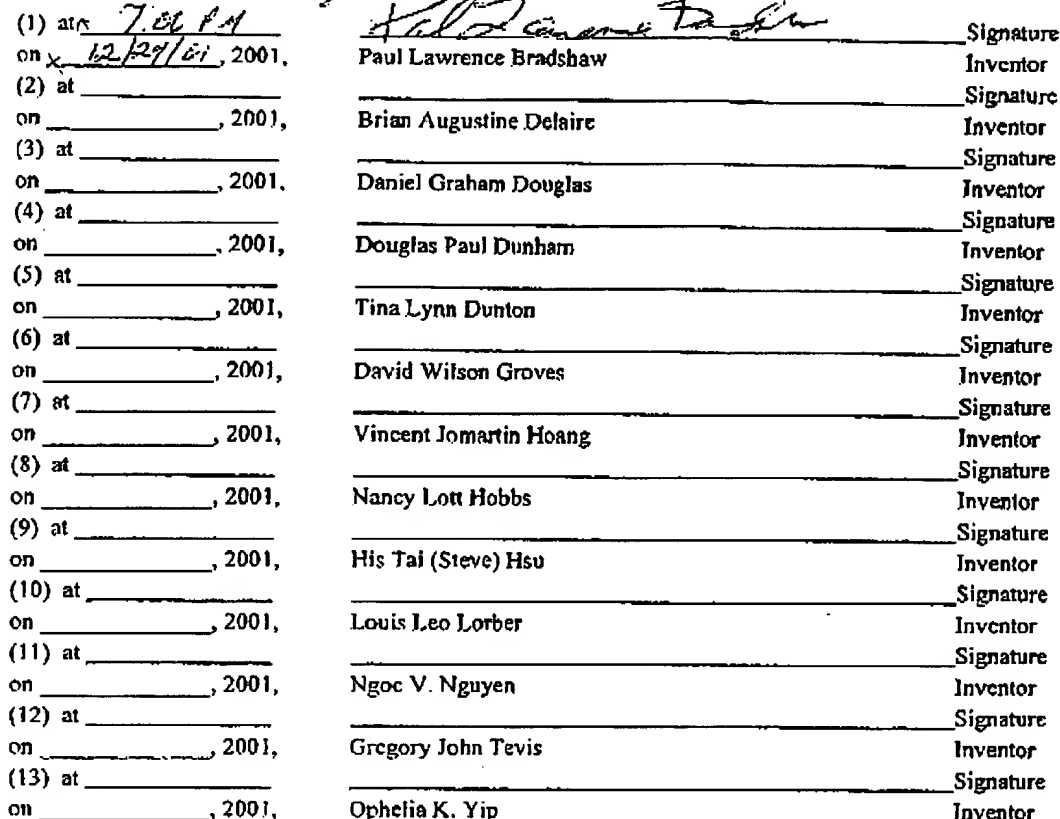 (1) at 7:00 PM Signature
on x 12/29/01, 2001, Paul Lawrence Bradshaw Inventor
(2) at Signature
on , 2001, Brian Augustine Delaire Inventor
(3) at Signature
on , 2001, Daniel Graham Douglas Inventor
(4) at Signature
on , 2001, Douglas Paul Dunham Inventor
(5) at Signature
on , 2001, Tina Lynn Dunton Inventor
(6) at Signature
on , 2001, David Wilson Groves Inventor
(7) at Signature
on , 2001, Vincent Jomartin Hoang Inventor
(8) at Signature
on , 2001, Nancy Lott Hobbs Inventor
(9) at Signature
on , 2001, His Tai (Steve) Hsu Inventor
(10) at Signature
on , 2001, Louis Leo Lorber Inventor
(11) at Signature
on , 2001, Ngoc V. Nguyen Inventor
(12) at Signature
on , 2001, Gregory John Tevis Inventor
(13) at Signature
on , 2001, Ophelia K. Yip Inventor